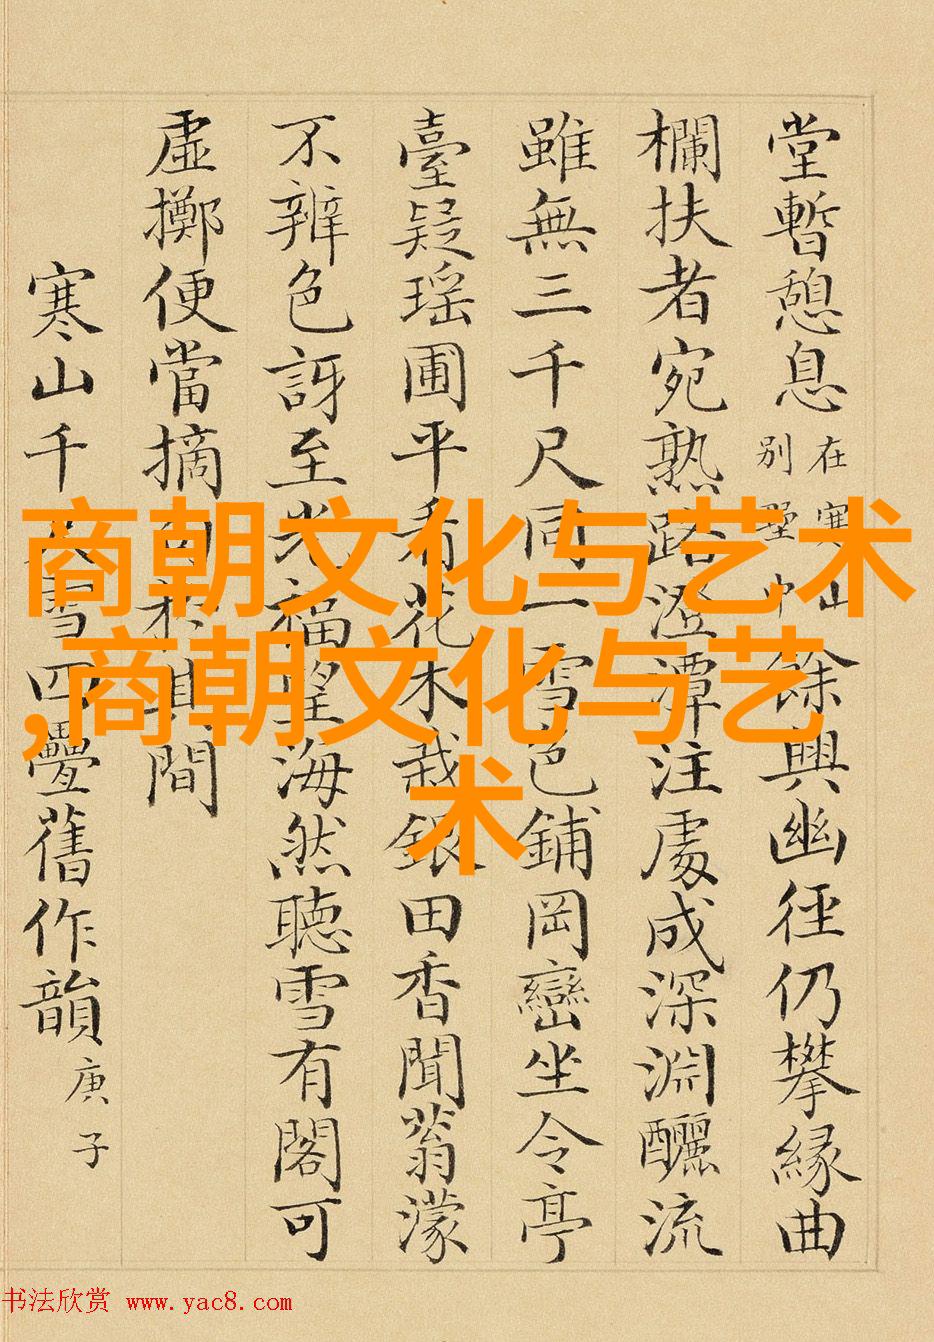 堂暫憩息在寒山別墅中餘興幽徑仍攀緣曲
欄扶者宛熟路澄潭注處成深淵釃流
雖無三千尺同一雪色鋪岡巒坐令亭
臺疑瑶圃平看花木栽銀田香聞蓊濛
不辨色訝至光福望海然聽雪有閣可
虛擲便當摘句於其間
寒山千尺雪四疊舊作韻庚子
商朝文化与艺术
,商朝文化与艺
术
书法欣赏 www.yac8.com